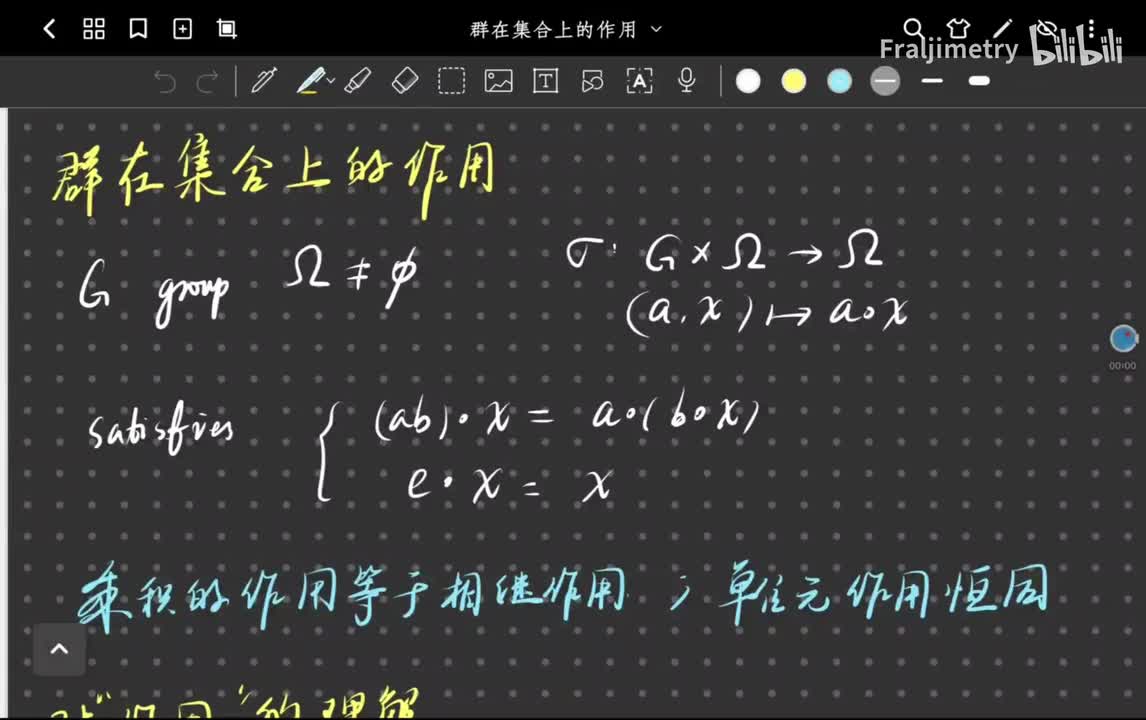 群在集合上的作用
Fraljimetry bilibili
群在集合上的作用
G group Ω ≠ ϕ
σ: G × Ω → Ω
(a, x) ↦ a∘x
00:00
satisfies { (ab)∘x = a∘(b∘x)
e∘x = x
乘积的作用等于相继作用 ; 单位元作用恒同
对“作用”的理解